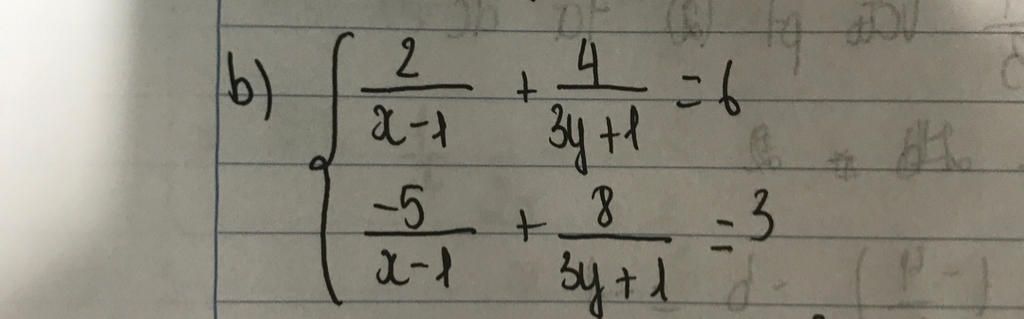 b) { 2/(x-1) + 4/(3y+1) = 6
-5/(x-1) + 8/(3y+1) = 3